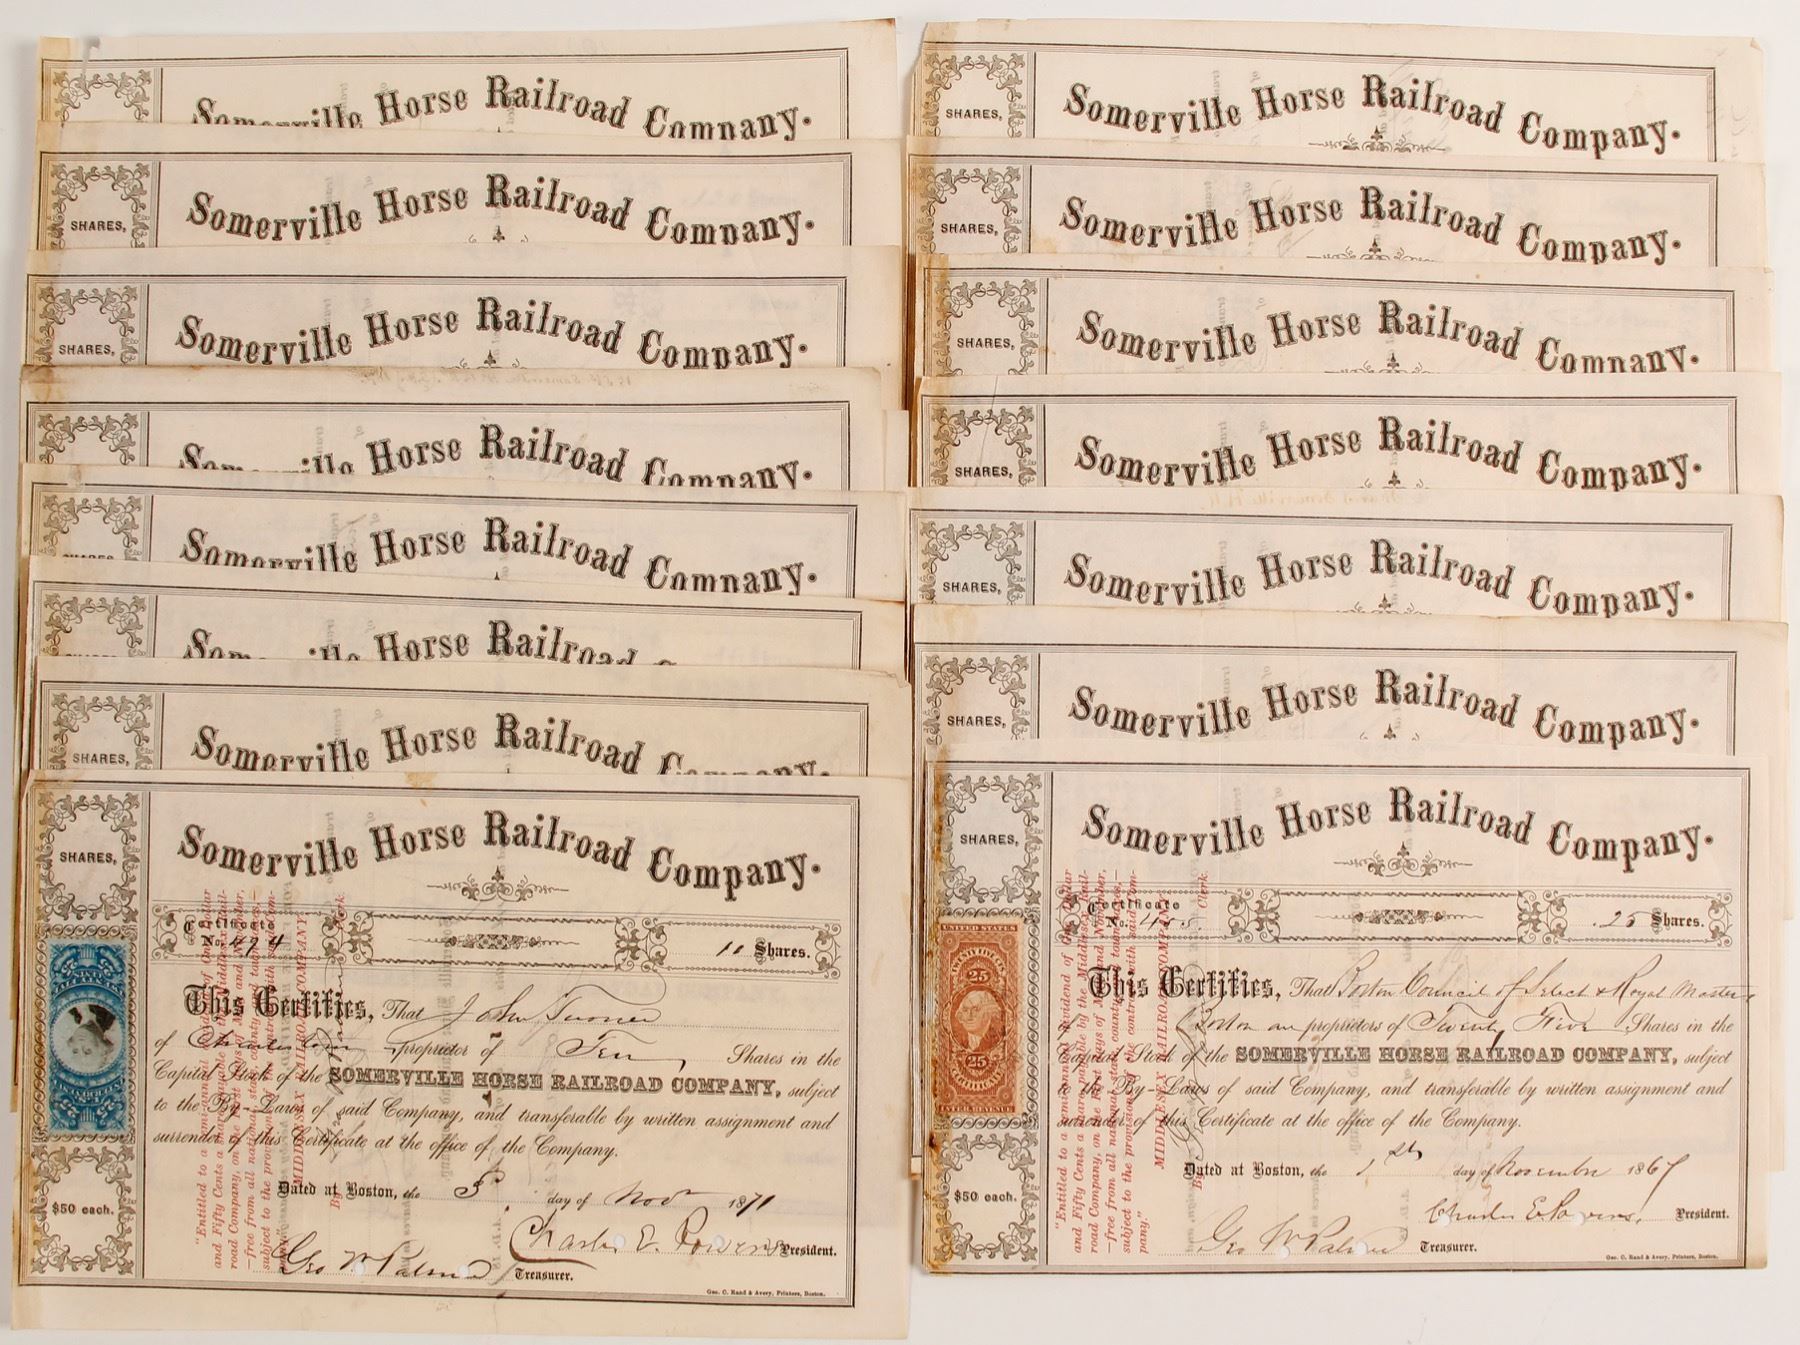 Somerville Horse Railroad Company.
SHARES,
Somerville Horse Railroad Company.
SHARES,
Somerville Horse Railroad Company.
Somerville Horse Railroad Company.
SHARES,
Somerville Horse Railroad Company.
SHARES,
Somerville Horse Railroad
SHARES,
Somerville Horse Railroad Company.
SHARES,
Somerville Horse Railroad Company.
Certificate
No. 494
10 Shares.
This Certifies, That John Turner
of Charlestown proprietor of Ten Shares in the
Capital Stock of the SOMERVILLE HORSE RAILROAD COMPANY, subject
to the By-Laws of said Company, and transferable by written assignment and
surrender of this Certificate at the office of the Company.
Dated at Boston, the 3d day of Novr 1871
Charles E. Powers President.
Geo W Palmer Treasurer.
Geo. C. Rand & Avery, Printers, Boston.
$50 each.
"Entitled to a semi-annual dividend of One Dollar
and Fifty Cents a share, payable by the Middlesex Rail-
road Company, on the first days of May and November,
—free from all national, state, county and town taxes,—
subject to the provisions of the contract with said Com-
pany."
MIDDLESEX RAILROAD COMPANY,
By
Clerk.
SHARES,
Somerville Horse Railroad Company.
SHARES,
Somerville Horse Railroad Company.
SHARES,
Somerville Horse Railroad Company.
SHARES,
Somerville Horse Railroad Company.
SHARES,
Somerville Horse Railroad Company.
SHARES,
Somerville Horse Railroad Company.
SHARES,
Somerville Horse Railroad Company.
Certificate
No. 405.
25 Shares.
This Certifies, That Boston Council of Select & Royal Masters
Boston are proprietors of Twenty Five Shares in the
Capital Stock of the SOMERVILLE HORSE RAILROAD COMPANY, subject
to the By-Laws of said Company, and transferable by written assignment and
surrender of this Certificate at the office of the Company.
Dated at Boston, the 1st day of November 1867
Charles E. Powers, President.
Geo W Palmer Treasurer.
Geo. C. Rand & Avery, Printers, Boston.
UNITED STATES
TWENTY FIVE CTS
25
25
CERTIFICATE
INTER. REVENUE
$50 each.
"Entitled to a semi-annual dividend of One Dollar
and Fifty Cents a share, payable by the Middlesex Rail-
road Company, on the first days of May and November,
—free from all national, state, county and town taxes,—
subject to the provisions of the contract with said Com-
pany."
MIDDLESEX RAILROAD COMPANY,
By
Clerk.